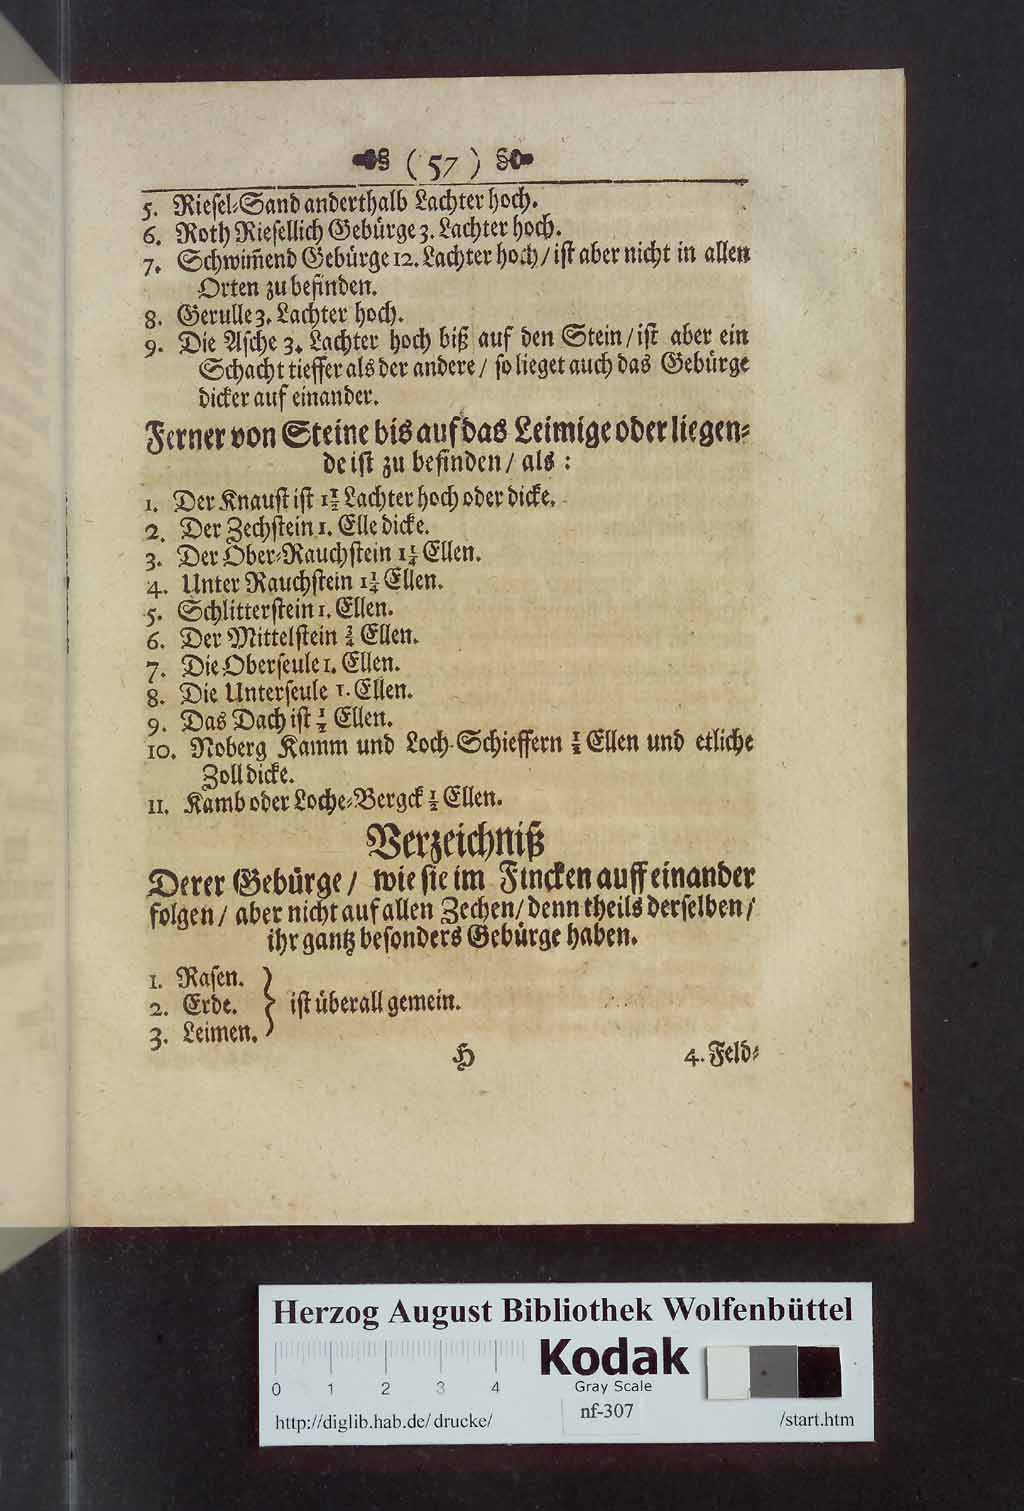 ( 57 )
5. Riesel-Sand anderthalb Lachter hoch.
6. Roth Riesellich Gebürge 3. Lachter hoch.
7. Schwim̃end Gebürge 12. Lachter hoch / ist aber nicht in allen
Orten zu befinden.
8. Gerulle 3. Lachter hoch.
9. Die Asche 3. Lachter hoch biß auf den Stein / ist aber ein
Schacht tieffer als der andere / so lieget auch das Gebürge
dicker auf einander.
Ferner von Steine bis auf das Leimige oder liegen-
de ist zu befinden / als :
1. Der Knaust ist 1½ Lachter hoch oder dicke.
2. Der Zechstein 1. Elle dicke.
3. Der Ober-Rauchstein 1¼ Ellen.
4. Unter Rauchstein 1¼ Ellen.
5. Schlitterstein 1. Ellen.
6. Der Mittelstein ¾ Ellen.
7. Die Oberseule 1. Ellen.
8. Die Unterseule 1. Ellen.
9. Das Dach ist ½ Ellen.
10. Noberg Kamm und Loch-Schieffern ½ Ellen und etliche
Zoll dicke.
11. Kamb oder Loche-Bergck ½ Ellen.
Verzeichniß
Derer Gebürge / wie sie im Fincken auff einander
folgen / aber nicht auf allen Zechen / denn theils derselben /
ihr gantz besonders Gebürge haben.
1. Rasen.
2. Erde. } ist überall gemein.
3. Leimen.
H 4. Feld-
Herzog August Bibliothek Wolfenbüttel
0 1 2 3 4 Kodak
Gray Scale
http://diglib.hab.de/drucke/ nf-307 /start.htm